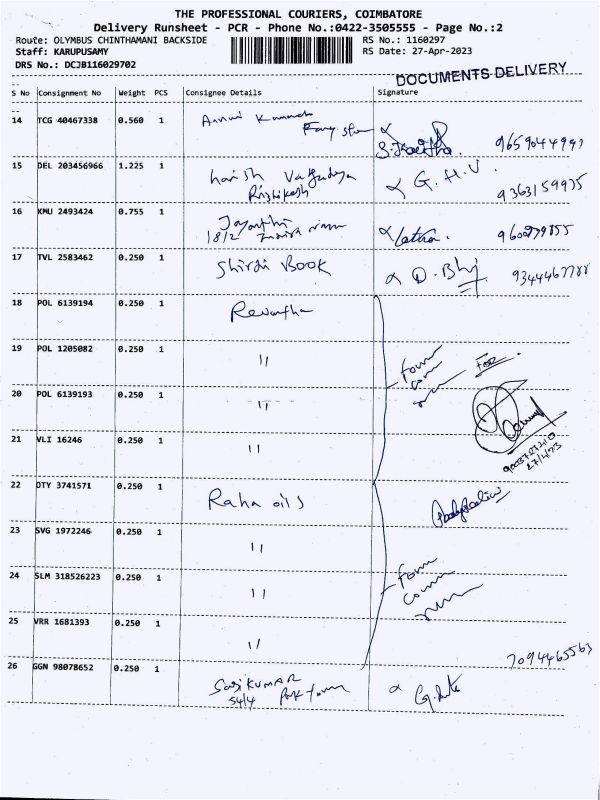 THE PROFESSIONAL COURIERS, COIMBATORE
Delivery Runsheet - PCR - Phone No.:0422-3505555 - Page No.:2
Route: OLYMBUS CHINTHAMANI BACKSIDE RS No.: 1160297
Staff: KARUPUSAMY RS Date: 27-Apr-2023
DRS No.: DCJB116029702
DOCUMENTS DELIVERY
S No Consignment No Weight PCS Consignee Details Signature
14 TCG 40467338 0.560 1
15 DEL 203456966 1.225 1 harish
Rishikesh G.H.V.
16 KMU 2493424 0.755 1 Jayanthi
18/2 Latha.
17 TVL 2583462 0.250 1 Shirdi Book D.Bhj
18 POL 6139194 0.250 1 Revantha
19 POL 1205082 0.250 1 "
20 POL 6139193 0.250 1 "
21 VLI 16246 0.250 1 "
27/4/23
22 DTY 3741571 0.250 1 Raha oils
23 SVG 1972246 0.250 1 "
24 SLM 318526223 0.250 1 "
25 VRR 1681393 0.250 1 "
7094465563
26 GGN 98078652 0.250 1 SasiKUMAR
54/4 Park town